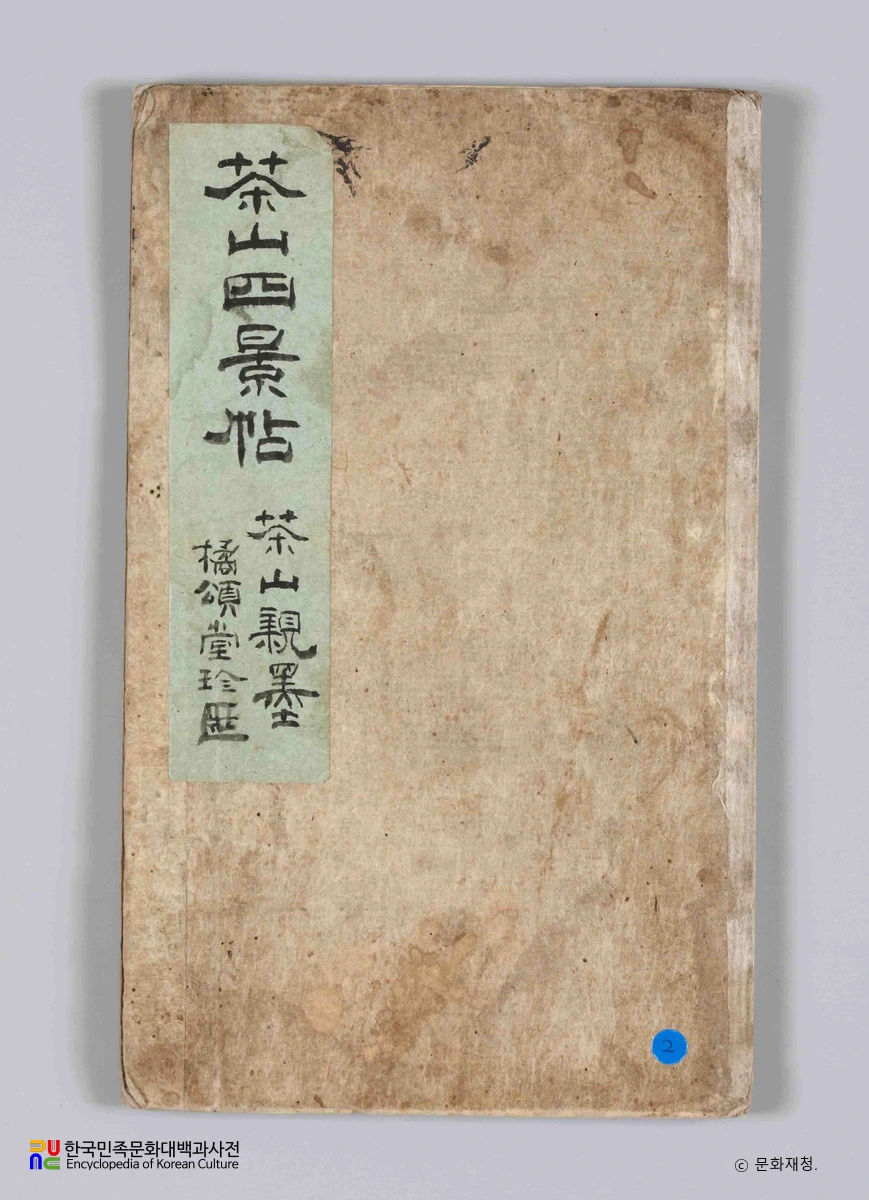 茶山四景帖
茶山親墨
橘頌堂珍匧
2
한국민족문화대백과사전
Encyclopedia of Korean Culture
© 문화재청.